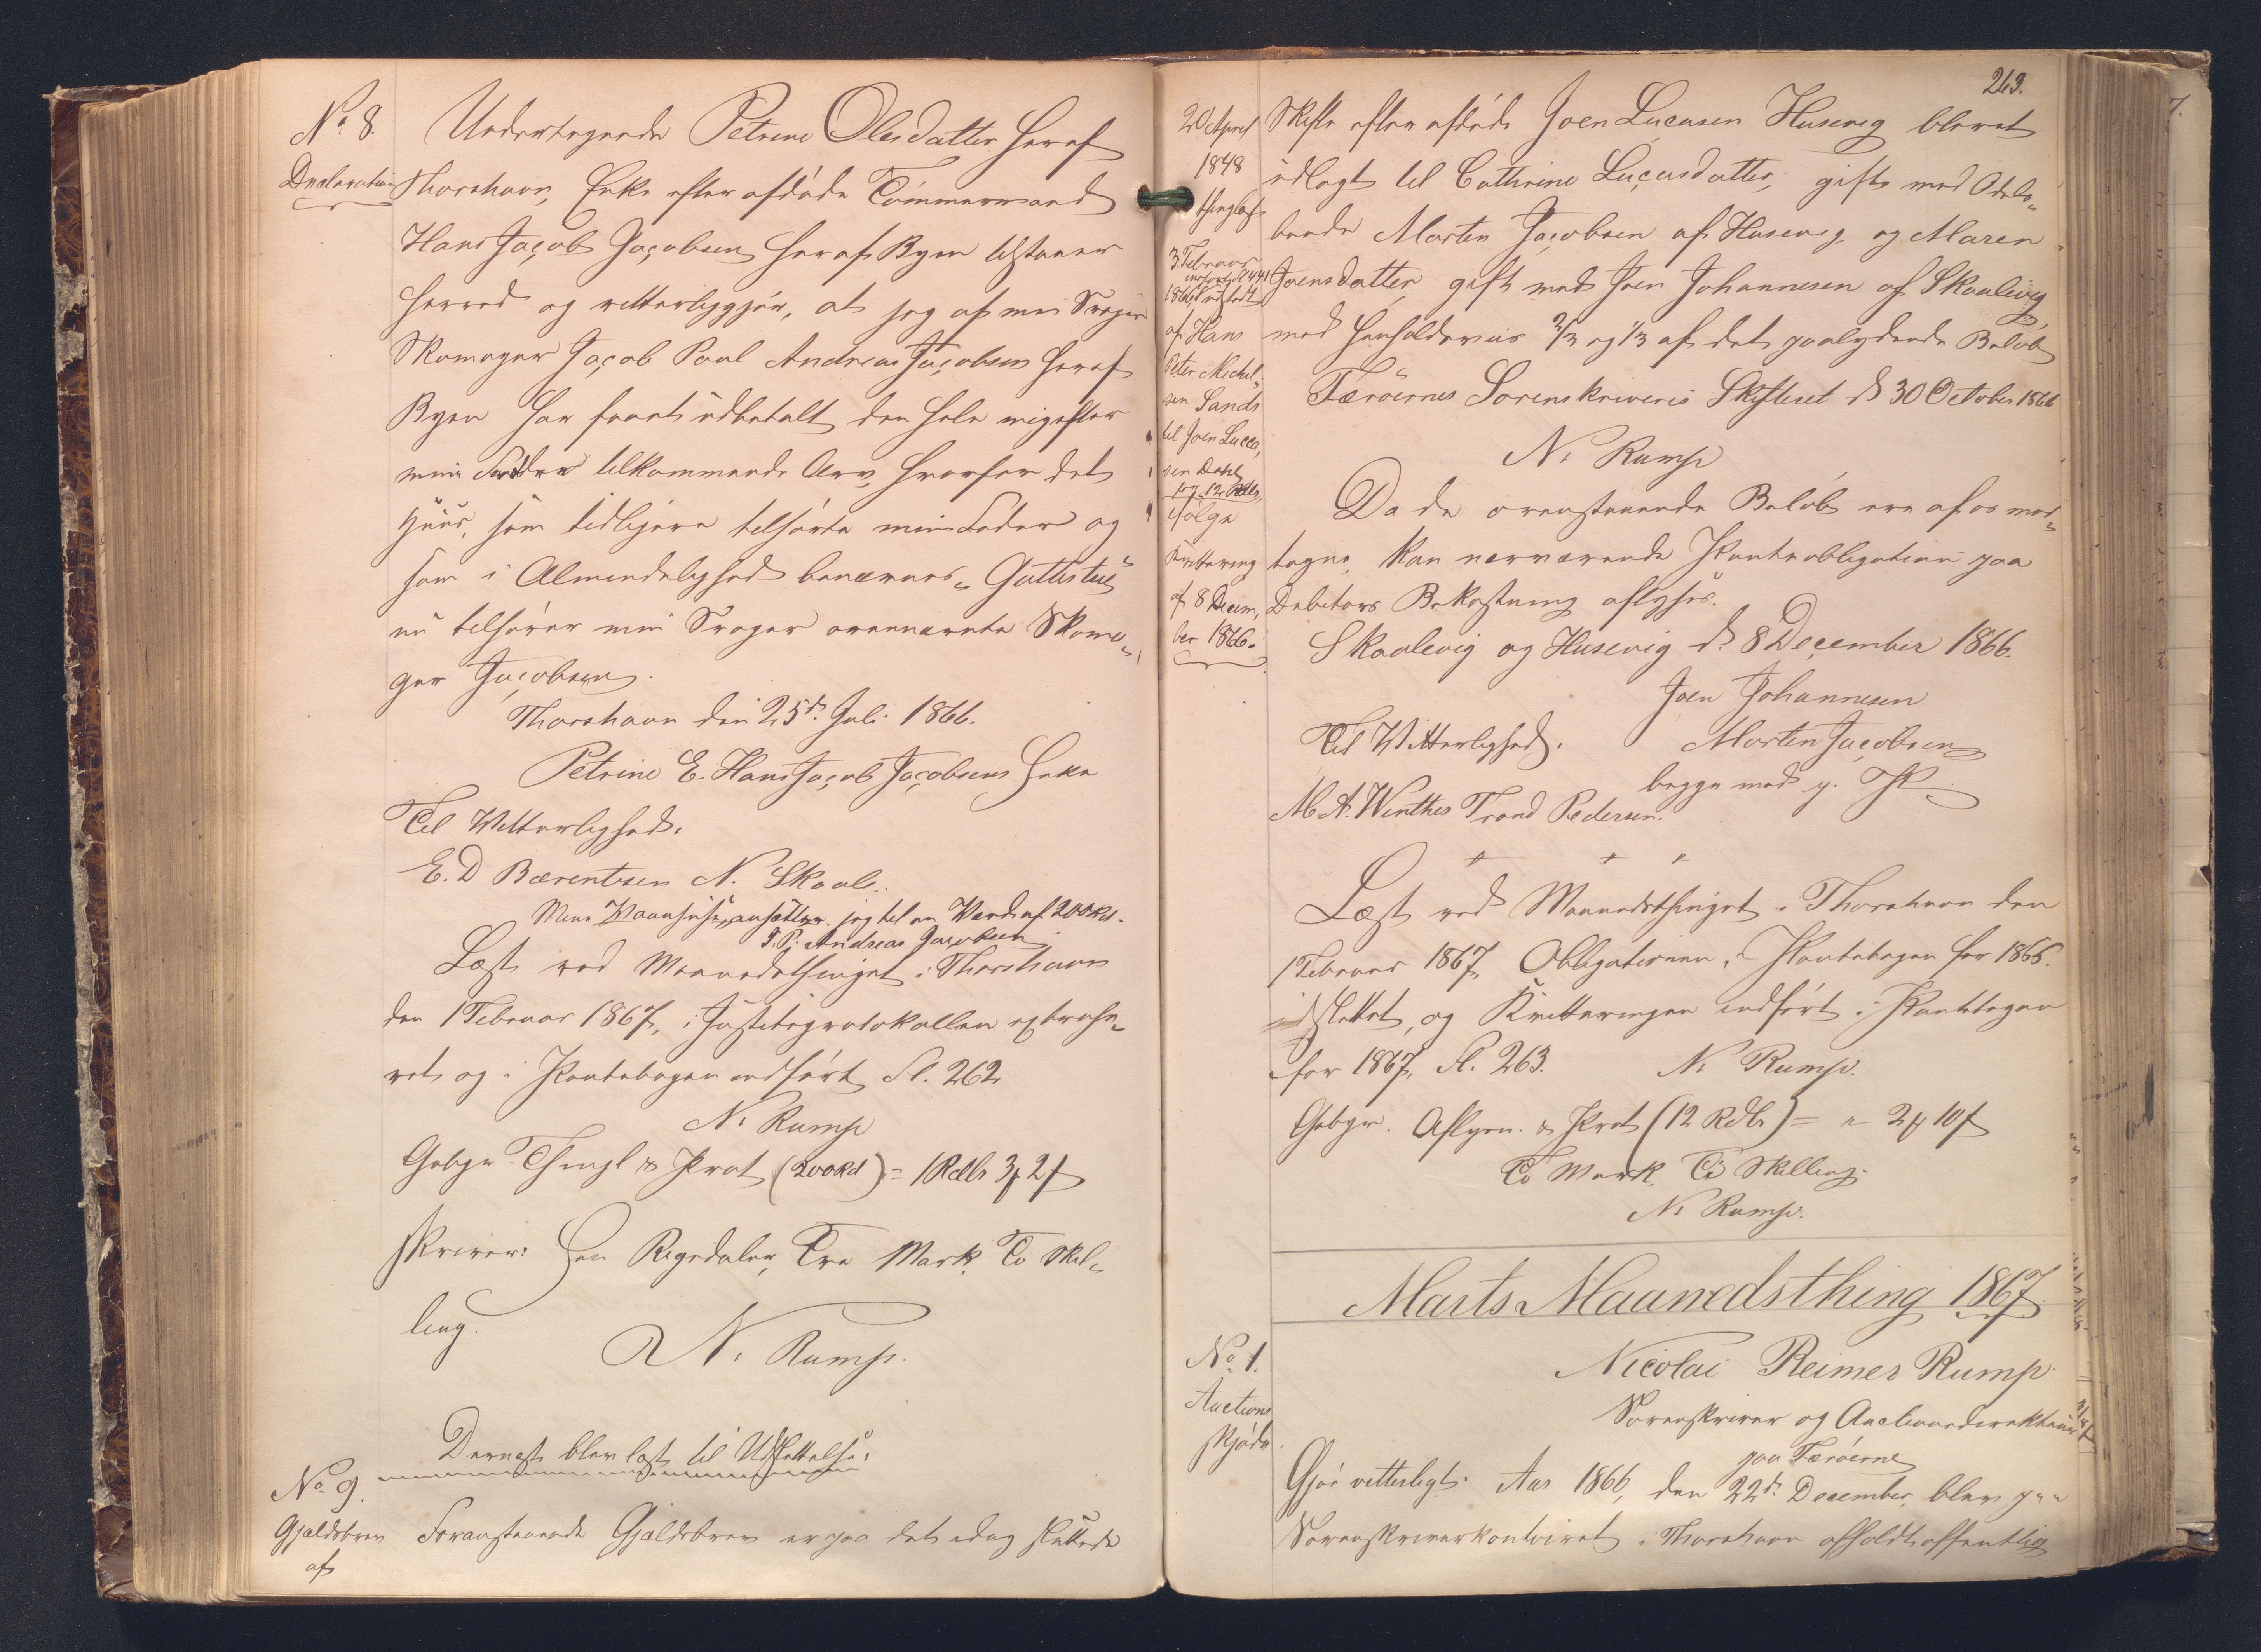 No 8.
Declaration
Undertegnede Petrine Olesdatter heraf
Thorshavn, Enke efter afdøde Tömmermand
Hans Jacob Jacobsen her af Byen tilstaaer
herved og vitterliggjør, at jeg af min Svoger
Skomager Jacob Poul Andreas Jacobsen heraf
Byen har faaet udbetalt den hele mig efter
mine Forældre tilkommende Arv, hvorfor det
Huus, som tidligere tilhørte min Fader og
som i Almindelighed benævnes "Guttestue"
nu tilhører min Svoger ovennævnte Skoma-
ger Jacobsen.
Thorshavn den 25d. Juli 1866.
Petrine E. Hans Jacob Jacobsens Enke
Til Vitterlighed:
E. D Bærentsen N. Skaale.
Mine Vaanhuse ansætter jeg til en Værdi af 200 Rd.
J. P. Andreas Jacobsen
Læst ved Maanedsthinget i Thorshavn
den 1 Februar 1867, i Justitsprotokollen extrahe-
ret og i Pantebogen indført Fol. 262
N. Rump
Gebyr. Thingl & Prot (200Rd) = 1 Rdlr 3 2
skriver: Een Rigsdaler, Tre Mark, To Skil-
ling.
N. Rump.
Dernæst blev læst til Udslettelse:
No 9.
Gjældsbrev
af
Foranstaaende Gjældsbrev er paa det idag sluttede
263.
20 April
1848
thinglæst
3 Februar
1844
udstedt
af Hans
Peter Michel-
sen Sands
til Joen Luca-
sen Dahl
12 Rdlr,
ifølge
Kvittering
af 8 Decem-
ber 1866.
Skifte efter afdøde Joen Lucasen Husevig blevet
udlagt til Cathrine Lucasdatter, gift med Odels-
bonde Morten Jacobsen af Husevig og Maren
Joensdatter, gift med Joen Johannesen af Skaalevig
med henholdsviis 2/3 og 1/3 af det paalydende Beløb
Færöernes Sorenskriveris Skifteret d 30 October 1866
N. Rump
Da de ovenstaaende Beløb ere af os mod-
tagne, kan nærværende Panteobligation paa
Debitors Bekostning aflyses.
Skaalevig og Husevig d. 8 December 1866.
Joen Johannesen
Til Vitterlighed: Morten Jacobsen
begge med p. P.
M. A. Winther Trond Pedersen.
Læst ved Maanedsthinget i Thorshavn den
1 Februar 1867, Obligationen i Pantebogen for 1866.
udslettet, og Kvitteringen indført i Pantebogen
for 1867, Fol. 263. N. Rump.
Gebyr. Aflysn. & Prot (12 Rdlr) = " 2 10
To Mark Ti Skilling.
N. Rump.
Marts Maanedsthing 1867
No 1.
Auctions
skjøde.
Nicolai Reimer Rump
Sorenskriver og Auctionsdirekteur
paa Færöerne
Gjør vitterligt: Aar 1866, den 22d. December, blev paa
Sorenskriverkontoiret i Thorshavn afholdt offentlig